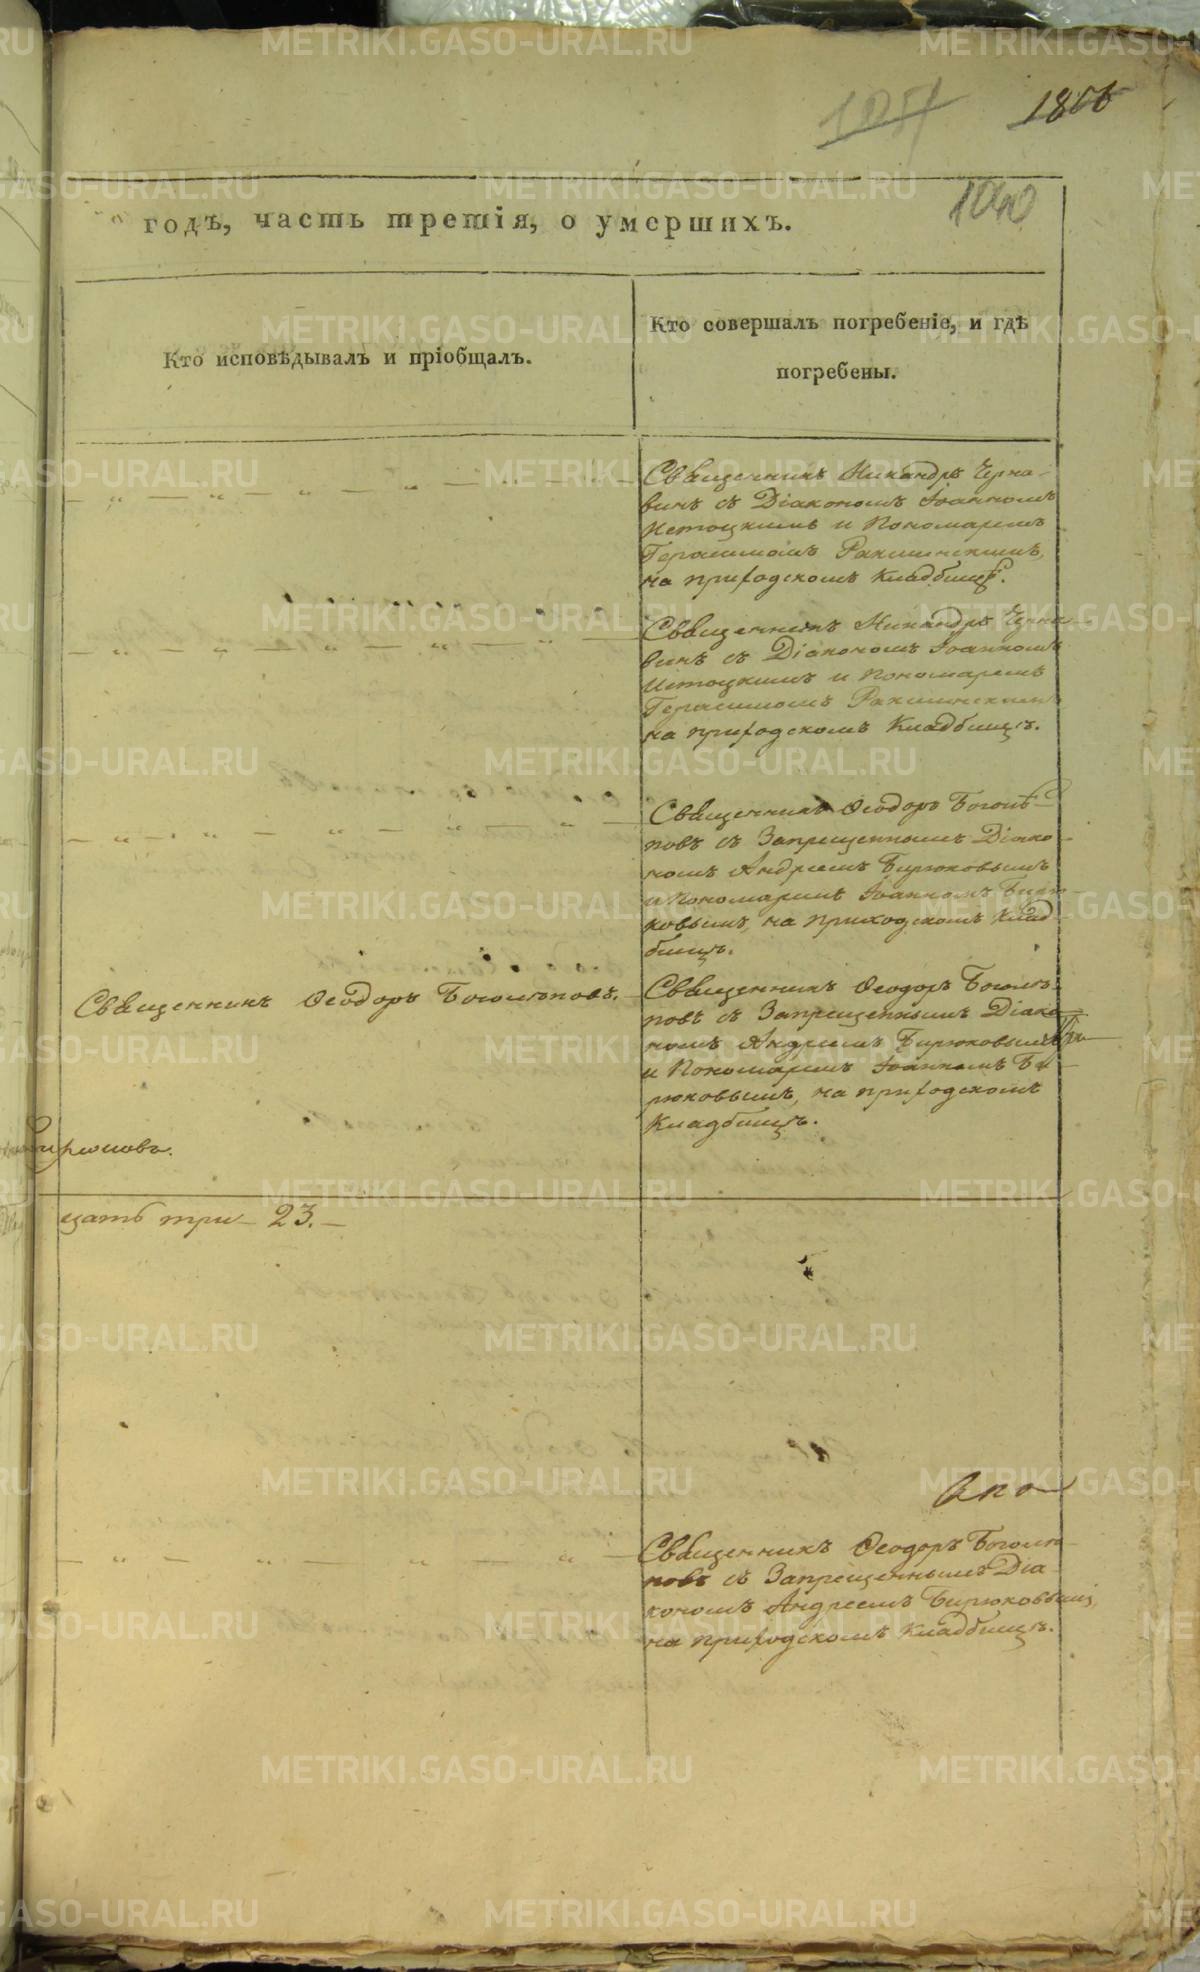 1057
1040
годъ, часть третія, о умершихъ.
Кто исповѣдывалъ и пріобщалъ.
Кто совершалъ погребеніе, и гдѣ
погребены.
Священникъ Никандръ Черна-
винъ съ Діакономъ Іоанномъ
Истоцкимъ и Пономаремъ
Герасимомъ Ракшинскимъ,
на приходскомъ Кладбищѣ.
Священникъ Никандръ Черна
винъ съ Діакономъ Іоанномъ
Истоцкимъ и Пономаремъ
Герасимомъ Ракшинскимъ
на приходскомъ Кладбищѣ.
Священникъ Ѳеодоръ Боголѣ-
повъ съ Запрещеннымъ Діако-
номъ Андреемъ Бирюковымъ
и Пономаремъ Іоанномъ Бирю-
ковымъ, на приходскомъ Клад-
бищѣ.
Священникъ Ѳеодоръ Боголѣповъ.
Священникъ Ѳеодоръ Боголѣ-
повъ съ Запрещеннымъ Діако-
номъ Андреемъ Бирюковымъ
и Пономаремъ Іоанномъ Би-
рюковымъ, на приходскомъ
Кладбищѣ.
цать три – 23. –
Священникъ Ѳеодоръ Боголѣ-
повъ съ Запрещеннымъ Діа-
кономъ Андреемъ Бирюковымъ,
на приходскомъ Кладбищѣ.
METRIKI.GASO-URAL.RU